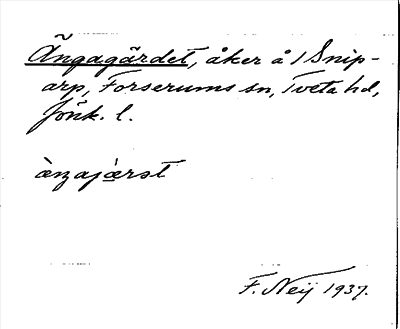 Ängagärdet, åker å 1 Snip-
arp, Forserums sn, Tveta hd,
Jönk. l.
F. Neij 1937.